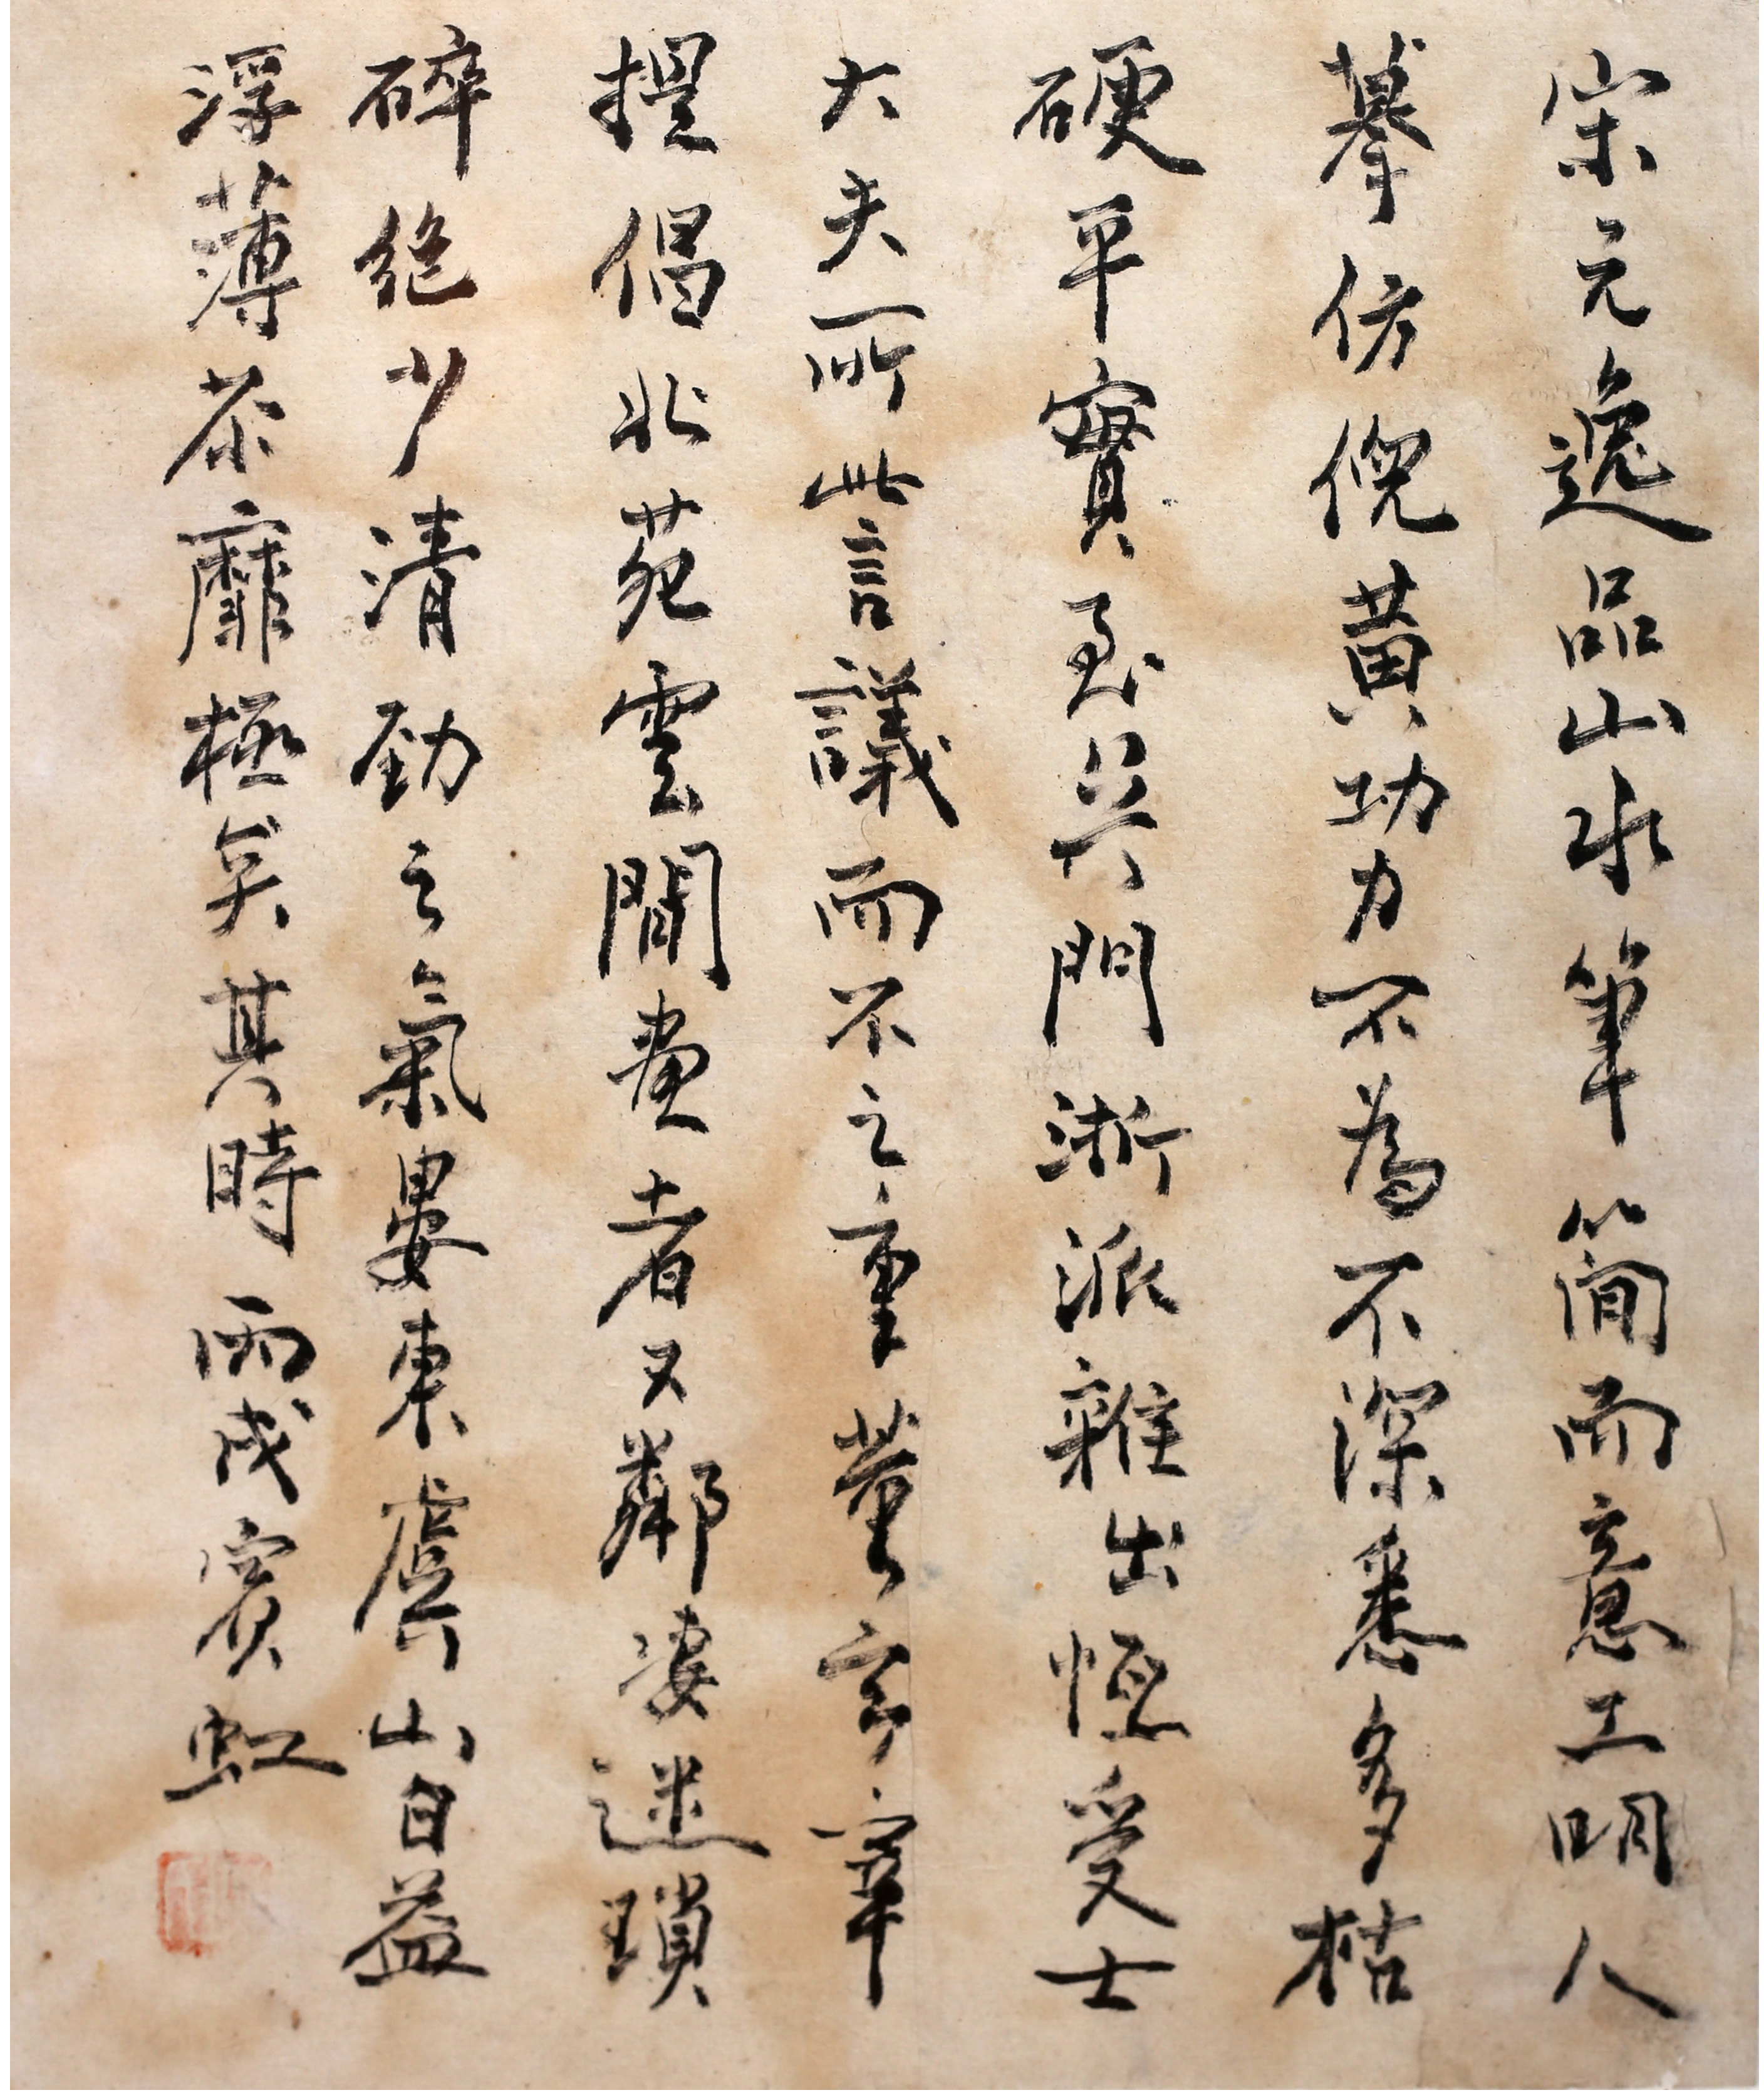 宋元逸品山水筆簡而意工明人
摹仿倪黃功力不為不深悉多枯
硬平實至吳門浙派雜出恆受士
大夫所訾議而不之重董玄宰
提倡北苑雲間畫者又鄰淒迷瑣
碎絕少清勁之氣婁東虞山日益
浮薄荼靡極矣其時 丙戌賓虹